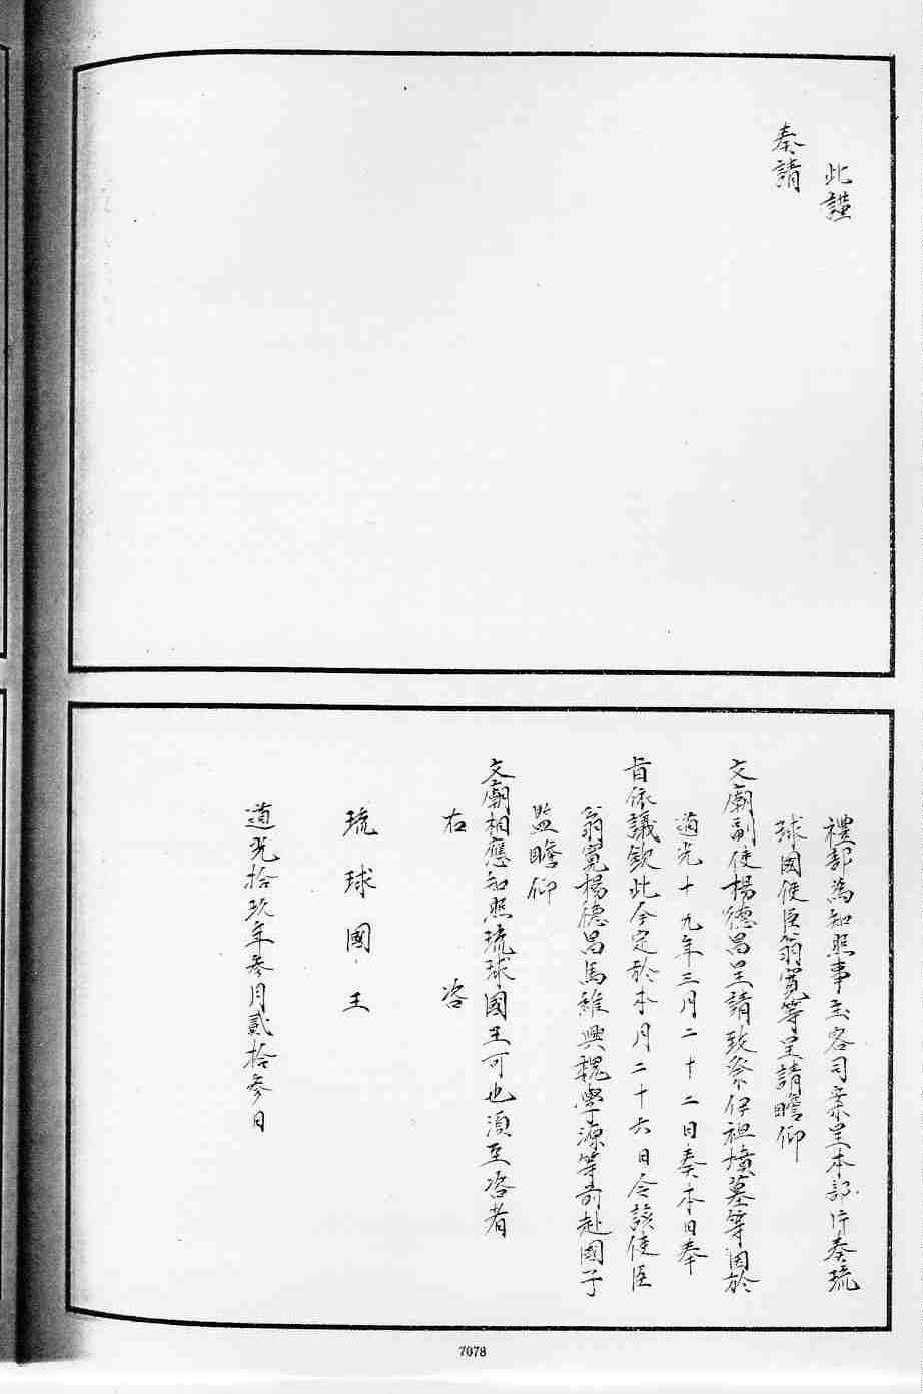 此謹
奏請
禮部為知照事主客司案呈本部片奏琉
球國使臣翁寬等呈請瞻仰
文廟副使楊德昌呈請致祭伊祖墳墓等因於
道光十九年三月二十二日奏本日奉
旨依議欽此今定於本月二十六日令該使臣
翁寬楊德昌馬維興魏學源等前赴國子
監瞻仰
文廟相應知照琉球國王可也須至咨者
右咨
琉球國王
道光拾玖年參月貳拾參日
7078